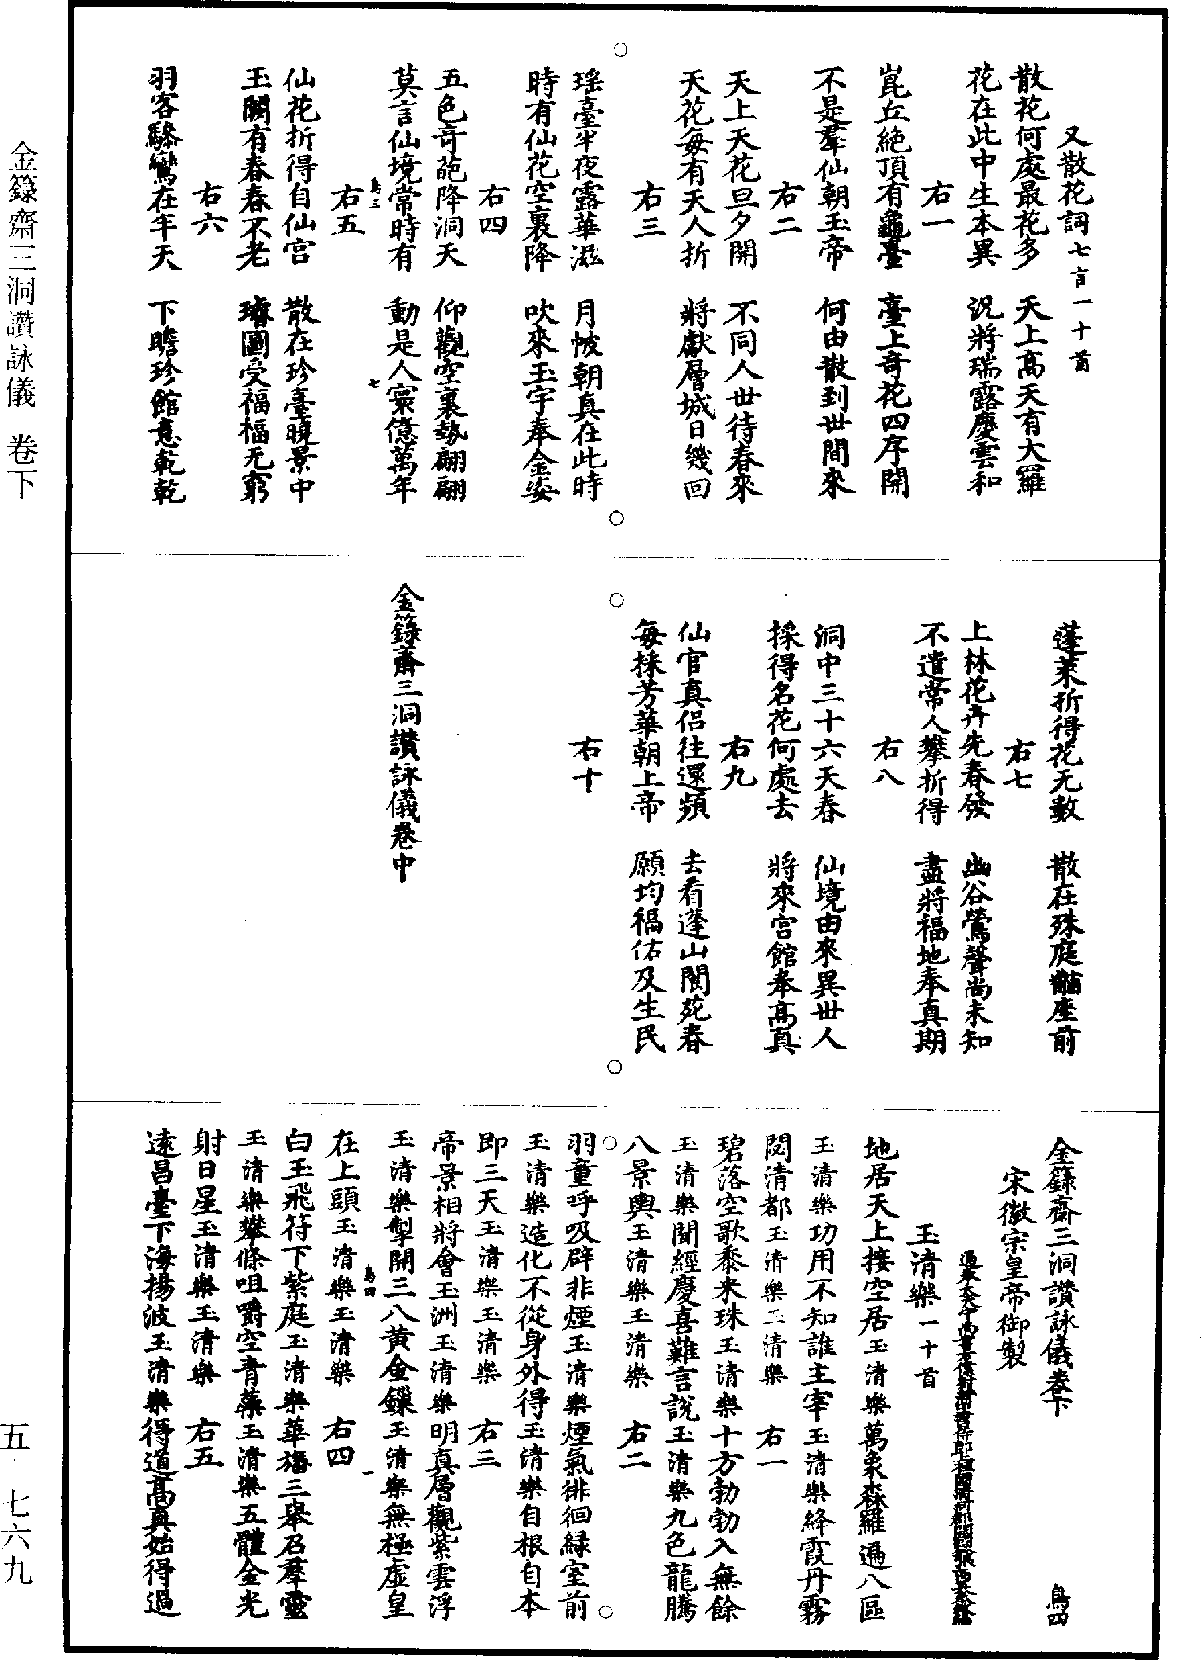 又散花詞七言一十首
散花何處最花多　天上高天有大羅
花在此中生本異　況將瑞露慶雲和
右一
崑丘絕頂有龜臺　臺上奇花四序開
不是羣仙朝玉帝　何由散到世間來
右二
天上天花旦夕開　不同人世待春來
天花每有天人折　將獻層城日幾回
右三
瑶臺半夜露華滋　月帔朝真在此時
時有仙花空裏降　吹來玉宇奉金姿
右四
五色奇葩降洞天　仰觀空裏勢翩翩
莫言仙境常時有　動是人寰億萬年
右五
仙花折得自仙宮　散在珍臺曉景中
玉闕有春春不老　璿圖受福福无窮
右六
羽客驂鸞在半天　下瞻珍館意乾乾
蓬萊折得花无數　散在殊庭黼座前
右七
上林花卉先春發　幽谷鶯聲尚未知
不遣常人攀折得　盡將福地奉真期
右八
洞中三十六天春　仙境由來異世人
採得名花何處去　將來宮館奉高真
右九
仙官真侶往還頻　去看蓬山閬苑春
每採芳華朝上帝　願均福佑及生民
右十
金籙齋三洞讚詠儀卷中
金籙齋三洞讚詠儀卷下　鳥四
宋徽宗皇帝御製
玉清樂一十首
地居天上接空居玉清樂萬象森羅遍八區
玉清樂功用不知誰主宰玉清樂絳霞丹霧
閟清都玉清樂玉清樂　右一
碧落空歌黍米珠玉清樂十方勃勃入無餘
玉清樂聞經慶喜難言說玉清樂九色龍騰
八景輿玉清樂玉清樂　右二
羽童呼吸辟非煙玉清樂煙氣徘徊緑室前
玉清樂造化不從身外得玉清樂自根自本
即三天玉清樂玉清樂　右三
帝景相將會玉洲玉清樂明真層觀紫雲浮
玉清樂掣開三八黄金鏁玉清樂無極虛皇
在上頭玉清樂玉清樂　右四
白玉飛符下紫庭玉清樂華旛三舉召羣靈
玉清樂攀條咀嚼空青蘂玉清樂五體金光
射日星玉清樂玉清樂　右五
遠昌臺下海揚波玉清樂得道高真始得過
鳥三
七
鳥四
一
金籙齋三洞讚詠儀　卷下
五·七六九